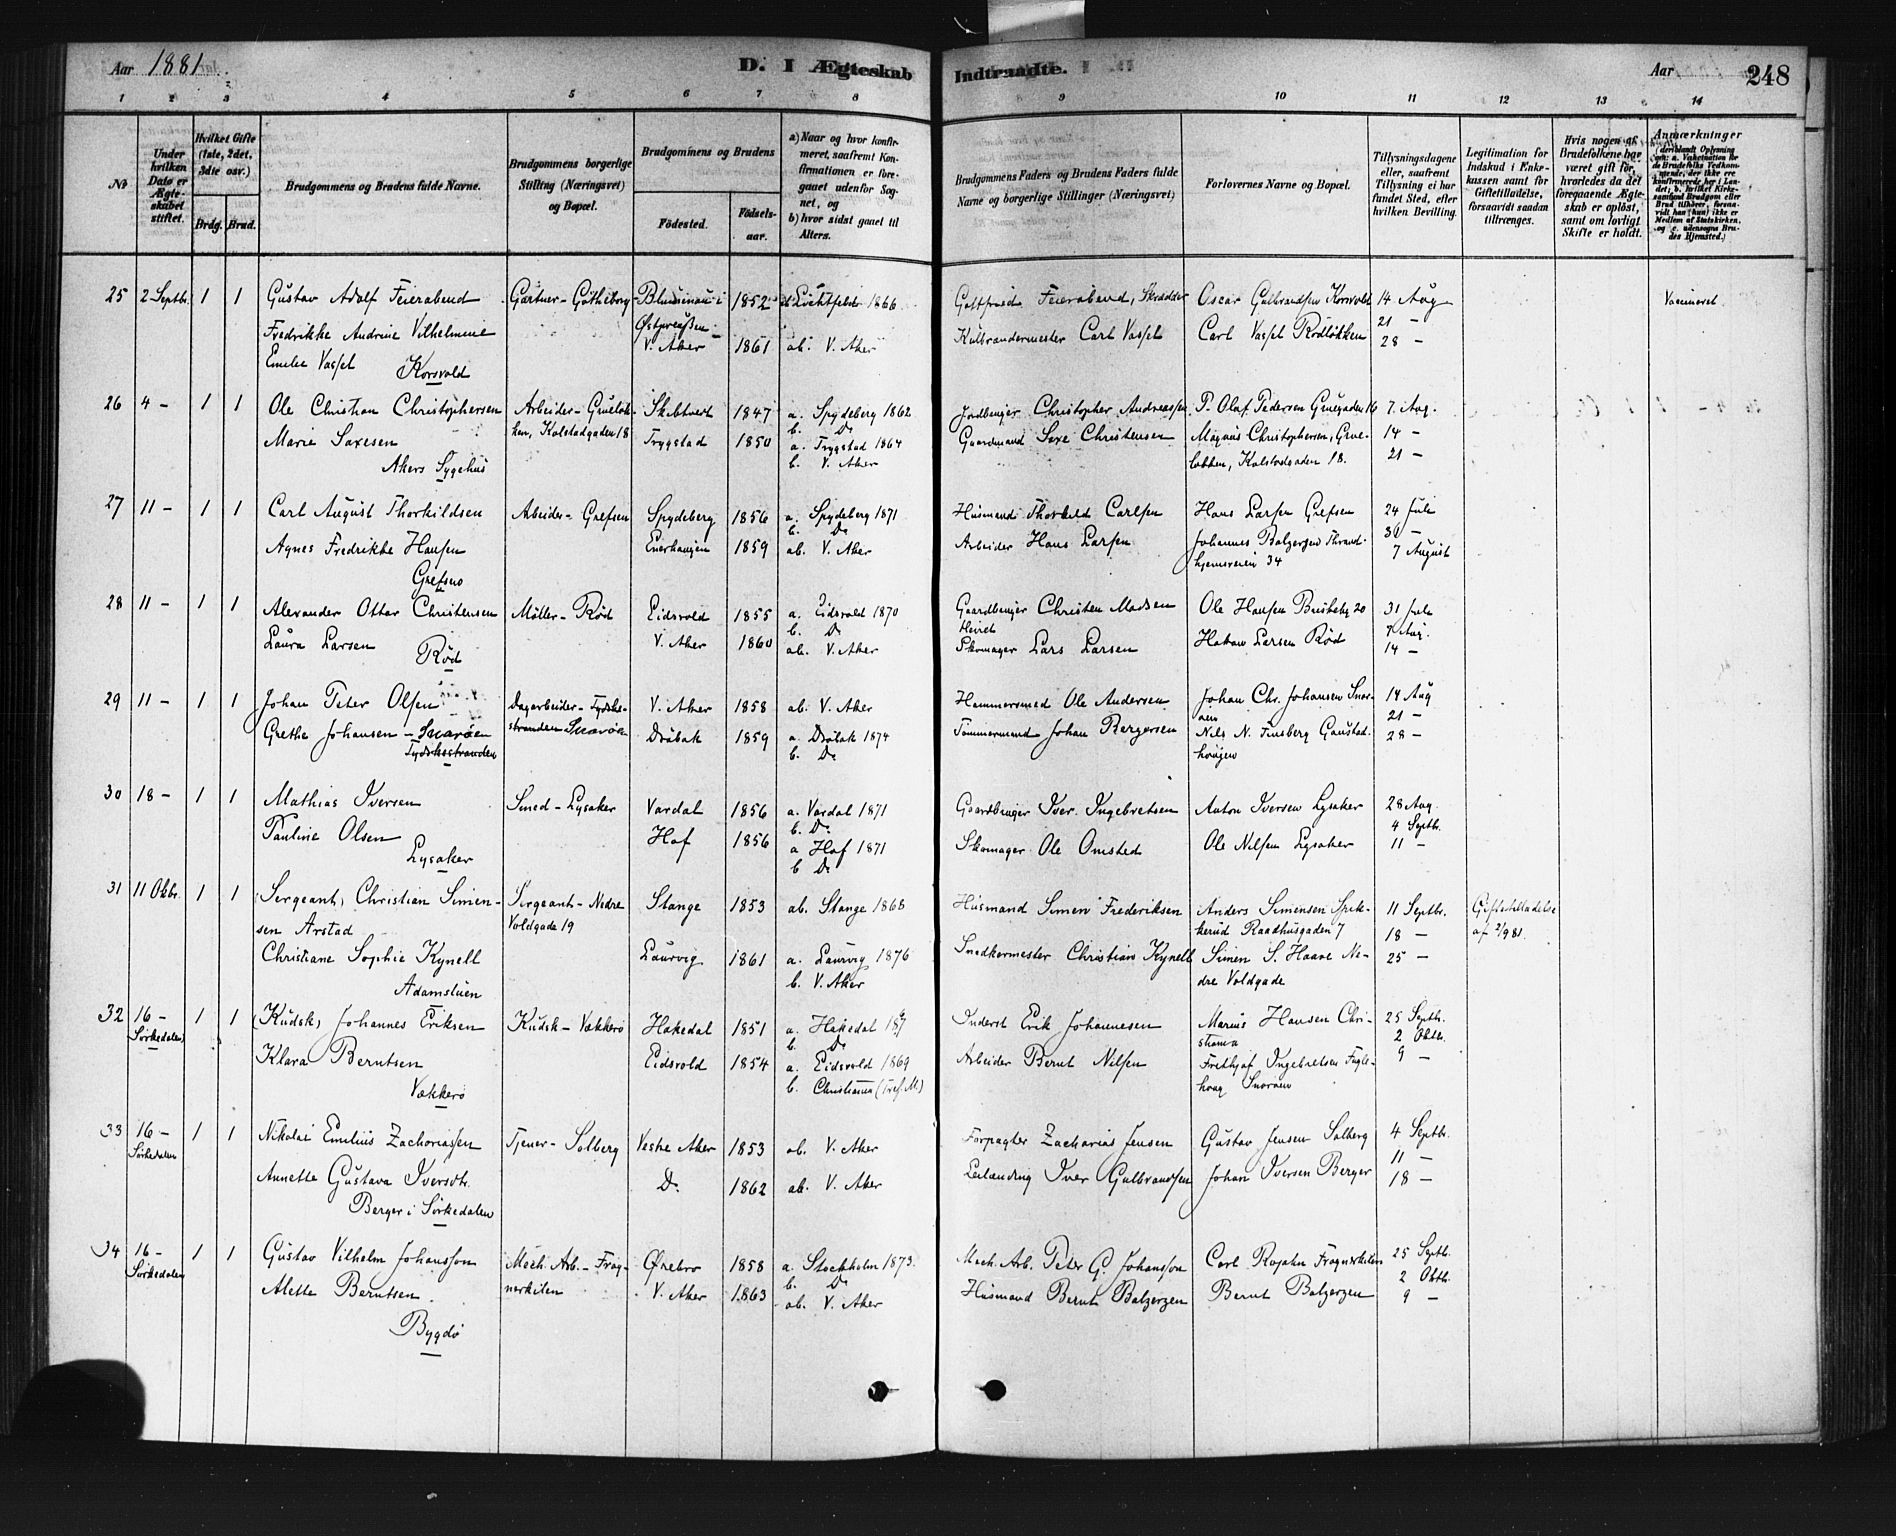 Aar 1881.
D. I Ægteskab Indtraadte.
Aar
248
1 2 3 4 5 6 7 8 9 10 11 12 13 14
№
Under hvilken Dato er Ægteskabet stiftet.
Hvilket Gifte (1ste, 2det, 3die osv.)
Brdg. Brud.
Brudgommens og Brudens fulde Navne.
Brudgommens borgerlige Stilling (Næringsvei) og Bopæl.
Brudgommens og Brudens
Födested.
Födselsaar.
a) Naar og hvor konfirmeret, saafremt Konfirmationen er foregaaet udenfor Sognet, og
b) hvor sidst gaaet til Alters.
Brudgommens Faders og Brudens Faders fulde Navne og borgerlige Stillinger (Næringsvei)
Forlovernes Navne og Bopæl.
Tillysningsdagene eller, saafremt Tillysning ei har fundet Sted, efter hvilken Bevilling.
Legitimation for Indskud i Enkekassen samt for Giftetilladelse, forsaavidt saadan tiltrænges.
Hvis nogen af Brudefolkene har været gift för, hvorledes da det foregaaende Ægteskab er oplöst, samt om lovligt Skifte er holdt.
Anmærkninger
25 2 Septb. 1 1 Gustav Adolf Feierabend Gartner - Götheborg 1852 1866 Gottfried Feierabend, Skrædder Oscar Gulbrandsen Korsvold 14 Aug Vaccineret
Fredrikke Andrine Vilhelmine Østpreussen V. Aker 1861 ab. V. Aker Carl Vasset Carl Vasset Rodeløkken 21 -
Emilie Vasset Korsvold 28 -
26 4 - 1 1 Ole Christian Christophersen Arbeider - Grueløk- Skibtvedt 1847 a. Spydeberg 1862 Jordbruger Christopher Andreassen P. Olaf Pedersen Gruegaden 16 7. Aug.
ken, Kolstadgaden 18 b. Do
Marie Saxesen Trygstad 1850 a. Trygstad 1864 Gaardmand Saxe Christensen Magnus Christophersen, Grue- 14 -
Akers Sygehus b. V. Aker løkken, Kolstadgaden 18. 21 -
27 11 - 1 1 Carl August Thorkildsen Arbeider - Grefsen Spydeberg 1856 a. Spydeberg 1871 Husmand Thorkild Carlsen Hans Larsen Grefsen 24 Juli
b. Do
Agnes Fredrikke Hansen Enerhaugen 1859 ab. V. Aker Arbeider Hans Larsen Johannes Balzersen Thrond- 31 -
Grefsen hjemsveien 34 7 August
28 11 - 1 1 Alexander Ottar Christensen Møller - Rød Eidsvold 1855 a. Eidsvold 1870 Gaardbruger Christen Madsen Ole Hansen 20 31 Juli
b. Do
Laura Larsen V. Aker 1860 ab. V. Aker Skomager Lars Larsen Hakon Larsen Rød 7 Aug.
Rød 14 -
29 11 - 1 1 Johan Peter Olsen Dagarbeider - Tydske- V. Aker 1858 ab. V. Aker Hammersmed Ole Andersen Johan Chr. Johansen Snar- 14 Aug
stranden Snarøen øen 21 -
Grethe Johansen - Snarøen Drøbak 1859 a. Drøbak 1874 Tømmermand Johan Bergersen Nils N. Finsberg Gaustad- 28 -
Tydskestranden b. Do haugen
30 18 - 1 1 Mathias Iversen Smed - Lysaker Vardal 1856 a. Vardal 1871 Gaardbruger Iver Ingebretsen Anton Iversen Lysaker 28 Aug.
b. Do 4 Septb.
Pauline Olsen Hof 1856 a Hof 1871 Skomager Ole Omsted Ole Nilsen Lysaker 11 -
Lysaker b Do
31 11 Oktbr. 1 1 Sergeant, Christian Simen- Sergeant - Nedre Stange 1853 ab. Stange 1868 Husmand Simen Frederiksen Anders Simensen Spik- 11 Septb. Giftetilladelse
sen Arstad Voldgade 19 kerud Raadhusgaden 7 18 - af 2/9 81.
Christiane Sophie Kynell Laurvig 1861 a. Laurvig 1876 Snedkermester Christian Kynell Simen S. Haave Ne- 25 -
Adamstuen b. V. Aker dre Voldgade
32 16 - 1 1 (Kudsk) Johannes Eriksen Kudsk - Vækkerø Hakedal 1851 a. Hakedal Inderst Erik Johannesen Marius Hansen Chri- 25 Septb.
Sørkedalen b. Do stiania 2 Oktb.
Klara Berntsen Eidsvold 1854 a. Eidsvold 1869 Arbeider Bernt Nilsen Frithjof Ingebretsen Fugle- 9 -
Vækkerø b. Christiania (Tref. M) haug Snarøen
33 16 - 1 1 Nikolai Emilius Zachariassen Tjener - Solberg Vestre Aker 1853 ab. V. Aker Forpagter Zacharias Jensen Gustav Jensen Solberg 4 Septb.
Sørkedalen 11 -
Annette Gustava Iversdtr. Do. 1862 ab. V. Aker Leilænding Iver Gulbrandsen Johan Iversen Berger 18 -
Berger i Sørkedalen
34 16 - 1 1 Gustav Vilhelm Johansson Mech. Arb. - Frog- Ørebro 1858 a. Stockholm 1873. Mech. Arb. Peter G. Johansson Carl Frognerkilen 25 Septb.
Sørkedalen nerkilen b. Do 2 Oktb.
Alette Berntsen V. Aker 1863 ab. V. Aker Husmand Bernt Balzersen Bernt Balzersen 9 -
Bygdø